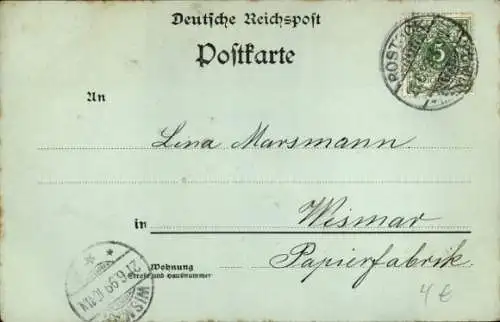 Deutsche Reichspost
Postkarte
5
An
Lina Marsmann
in Wismar
Wohnung
Straße und Hausnummer
Papierfabrik.
27.6.99
WISM
4 €